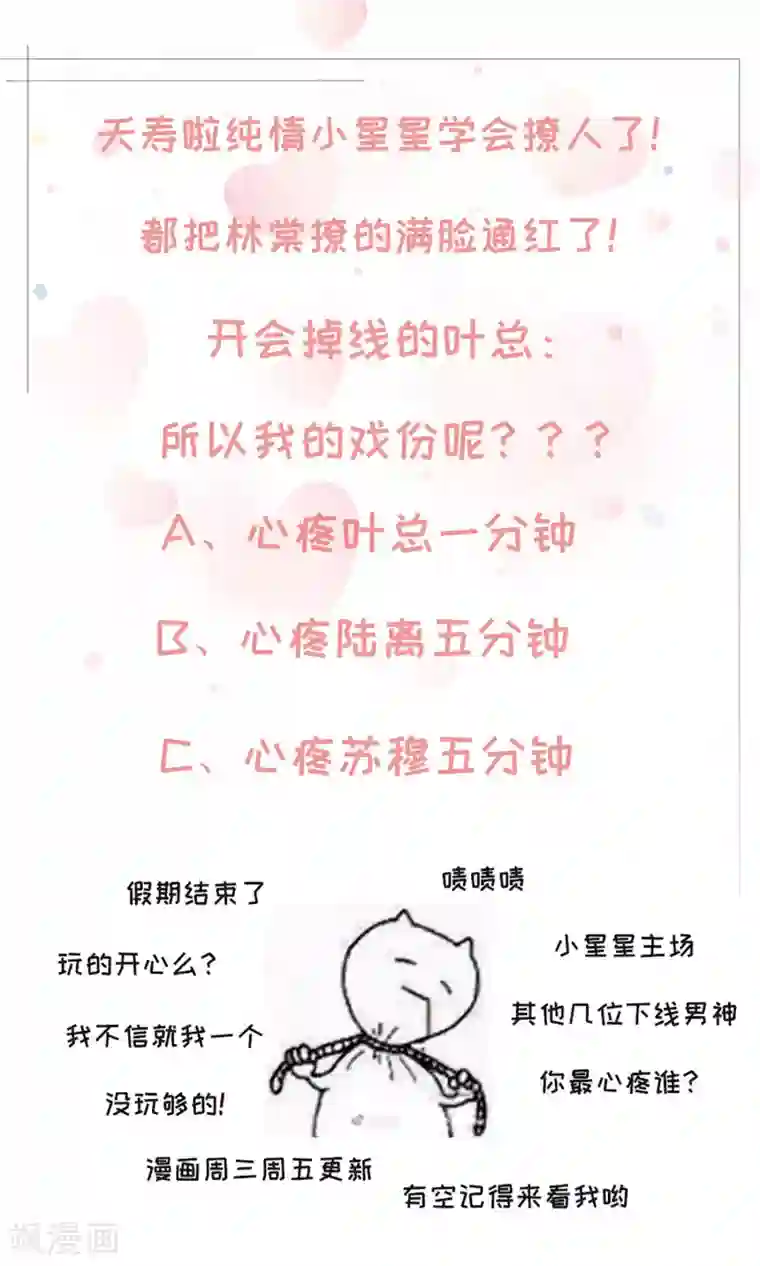 夭寿啦纯情小星星学会撩人了!
都把林棠撩的满脸通红了!
开会掉线的叶总:
所以我的戏份呢???
A、心疼叶总一分钟
B、心疼陆离五分钟
C、心疼苏穆五分钟
假期结束了
玩的开心么?
我不信就我一个
没玩够的!
啧啧啧
小星星主场
其他几位下线男神
你最心疼谁?
漫画周三周五更新
有空记得来看我哟
飒漫画